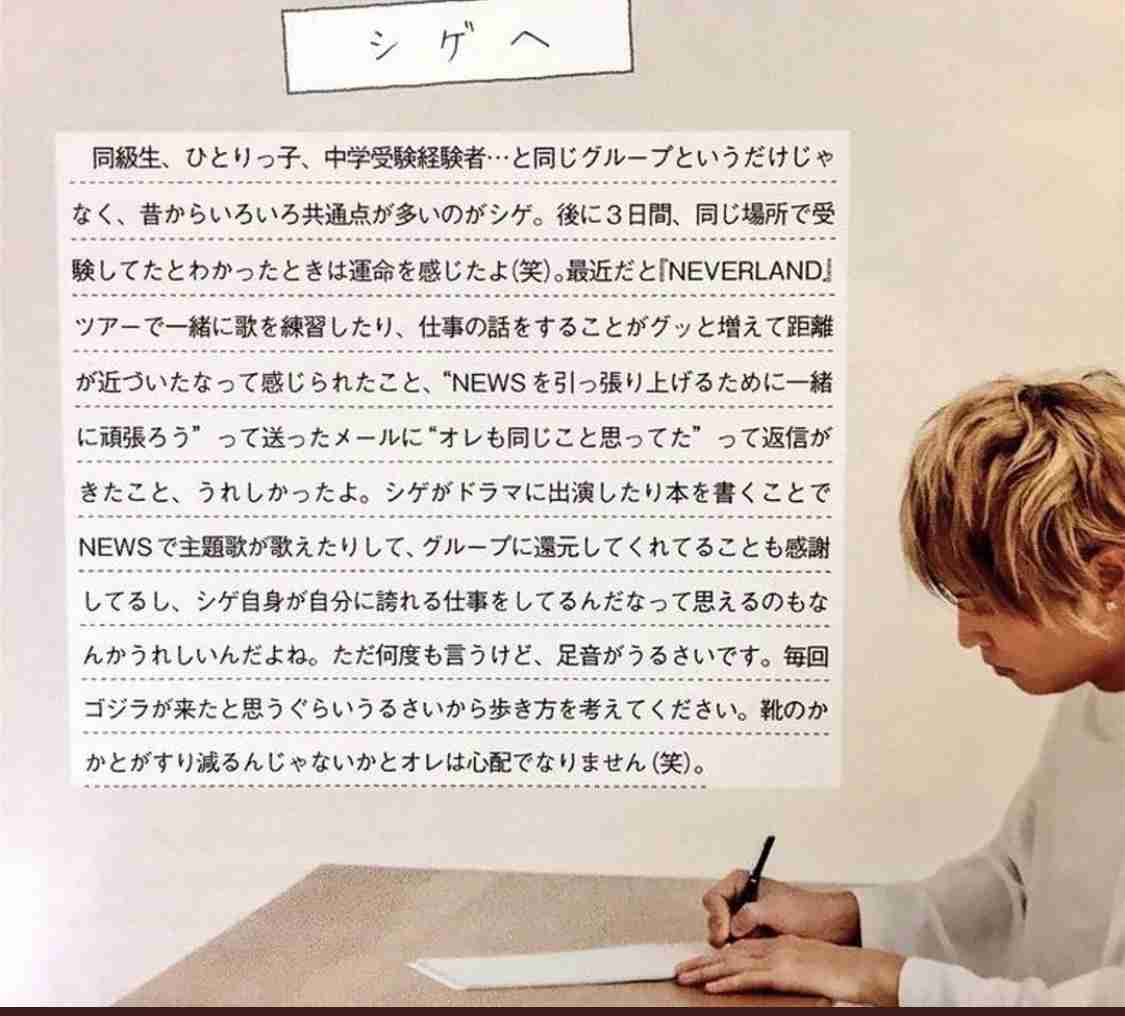 シゲへ
同級生、ひとりっ子、中学受験経験者…と同じグループというだけじゃ
なく、昔からいろいろ共通点が多いのがシゲ。後に3日間、同じ場所で受
験してたとわかったときは運命を感じたよ(笑)。最近だと『NEVERLAND』
ツアーで一緒に歌を練習したり、仕事の話をすることがグッと増えて距離
が近づいたなって感じられたこと、“NEWSを引っ張り上げるために一緒
に頑張ろう”って送ったメールに“オレも同じこと思ってた”って返信が
きたこと、うれしかったよ。シゲがドラマに出演したり本を書くことで
NEWSで主題歌が歌えたりして、グループに還元してくれてることも感謝
してるし、シゲ自身が自分に誇れる仕事をしてるんだなって思えるのもな
んかうれしいんだよね。ただ何度も言うけど、足音がうるさいです。毎回
ゴジラが来たと思うぐらいうるさいから歩き方を考えてください。靴のか
かとがすり減るんじゃないかとオレは心配でなりません(笑)。